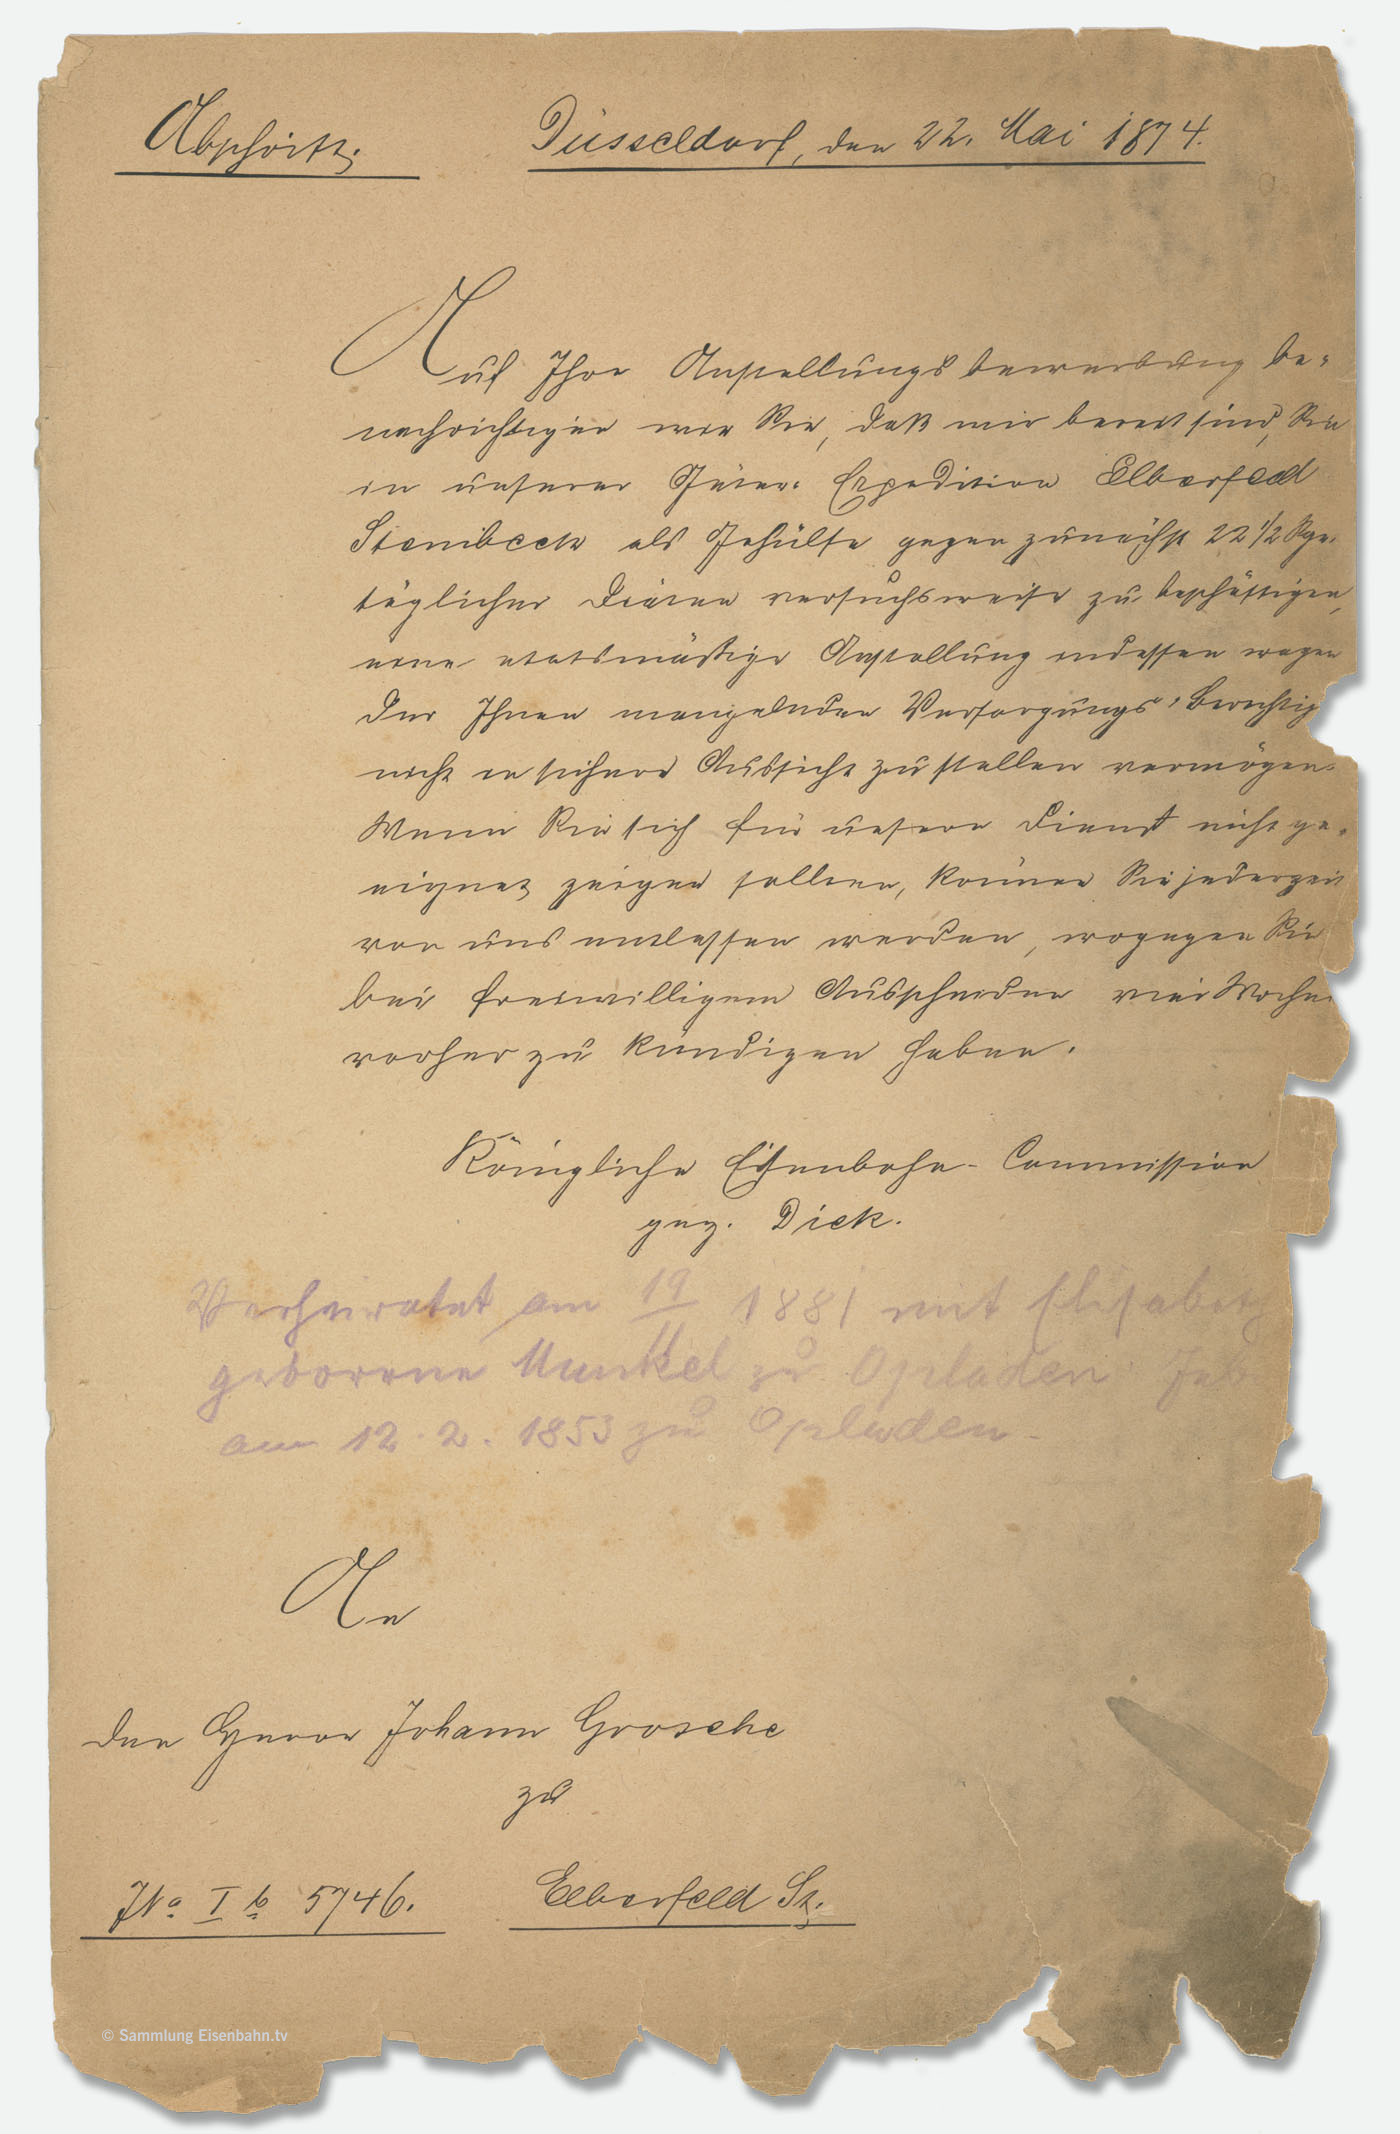 Abschrift.
Düsseldorf, den 22. Mai 1874.
Auf Ihre Anstellungsbewerbung be-
nachrichtigen wir Sie, daß wir bereit sind, Sie
in unserer Güter-Expedition Elberfeld
Steinbeck als Gehülfe gegen zunächst 22 1/2 Sgr.
täglicher Diäten versuchsweise zu beschäftigen,
eine etatsmäßige Anstellung indessen wegen
der Ihnen mangelnden Versorgungs-Berechtig
nicht in sichere Aussicht zu stellen vermögen.
Wenn Sie sich für unseren Dienst nicht ge-
eignet zeigen sollten, können Sie jederzeit
von uns entlassen werden, wogegen Sie
bei freiwilligem Ausscheiden vier Wochen
vorher zu kündigen haben.
Königliche Eisenbahn-Commission
gez. Dick.
Verheiratet am 19 1881 mit Elisabeth
geborene Munkel zu Opladen Geb.
am 12. 2. 1853 zu Opladen.
An
den Herrn Johann Grosche
zu
Elberfeld St.
No I b 5746.
© Sammlung Eisenbahn.tv